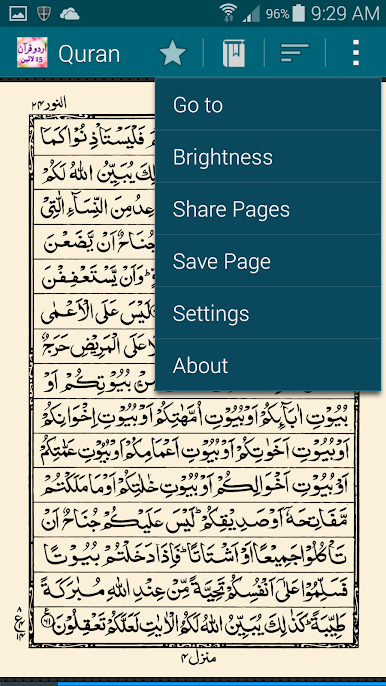 96% 9:29 AM
اردو قرآن
15 لائین
Quran
Go to
Brightness
Share Pages
Save Page
Settings
About
النور ٢٤
فَلْيَسْتَاْذِنُوْا كَمَا
يُبَيِّنُ اللّٰهُ لَكُمْ
مِنَ النِّسَآءِ الّٰتِيْ
جُنَاحٌ اَنْ يَّضَعْنَ
وَاَنْ يَّسْتَعْفِفْنَ
لَيْسَ عَلَى الْاَعْمٰى
عَلَى الْمَرِيْضِ حَرَجٌ
بُيُوْتِكُمْ اَوْ
بُيُوْتِ اٰبَآئِكُمْ اَوْ بُيُوْتِ اُمَّهٰتِكُمْ اَوْ بُيُوْتِ اِخْوَانِكُمْ
اَوْ بُيُوْتِ اَخَوٰتِكُمْ اَوْ بُيُوْتِ اَعْمَامِكُمْ اَوْ بُيُوْتِ عَمّٰتِكُمْ
اَوْ بُيُوْتِ اَخْوَالِكُمْ اَوْ بُيُوْتِ خٰلٰتِكُمْ اَوْ مَا مَلَكْتُمْ
مَّفَاتِحَهٗۤ اَوْ صَدِيْقِكُمْ ؕ لَيْسَ عَلَيْكُمْ جُنَاحٌ اَنْ
تَاْكُلُوْا جَمِيْعًا اَوْ اَشْتَاتًا ؕ فَاِذَا دَخَلْتُمْ بُيُوْتًا
فَسَلِّمُوْا عَلٰۤى اَنْفُسِكُمْ تَحِيَّةً مِّنْ عِنْدِ اللّٰهِ مُبٰرَكَةً
طَيِّبَةً ؕ كَذٰلِكَ يُبَيِّنُ اللّٰهُ لَكُمُ الْاٰيٰتِ لَعَلَّكُمْ تَعْقِلُوْنَ ﴿٦١﴾
منزل ٤